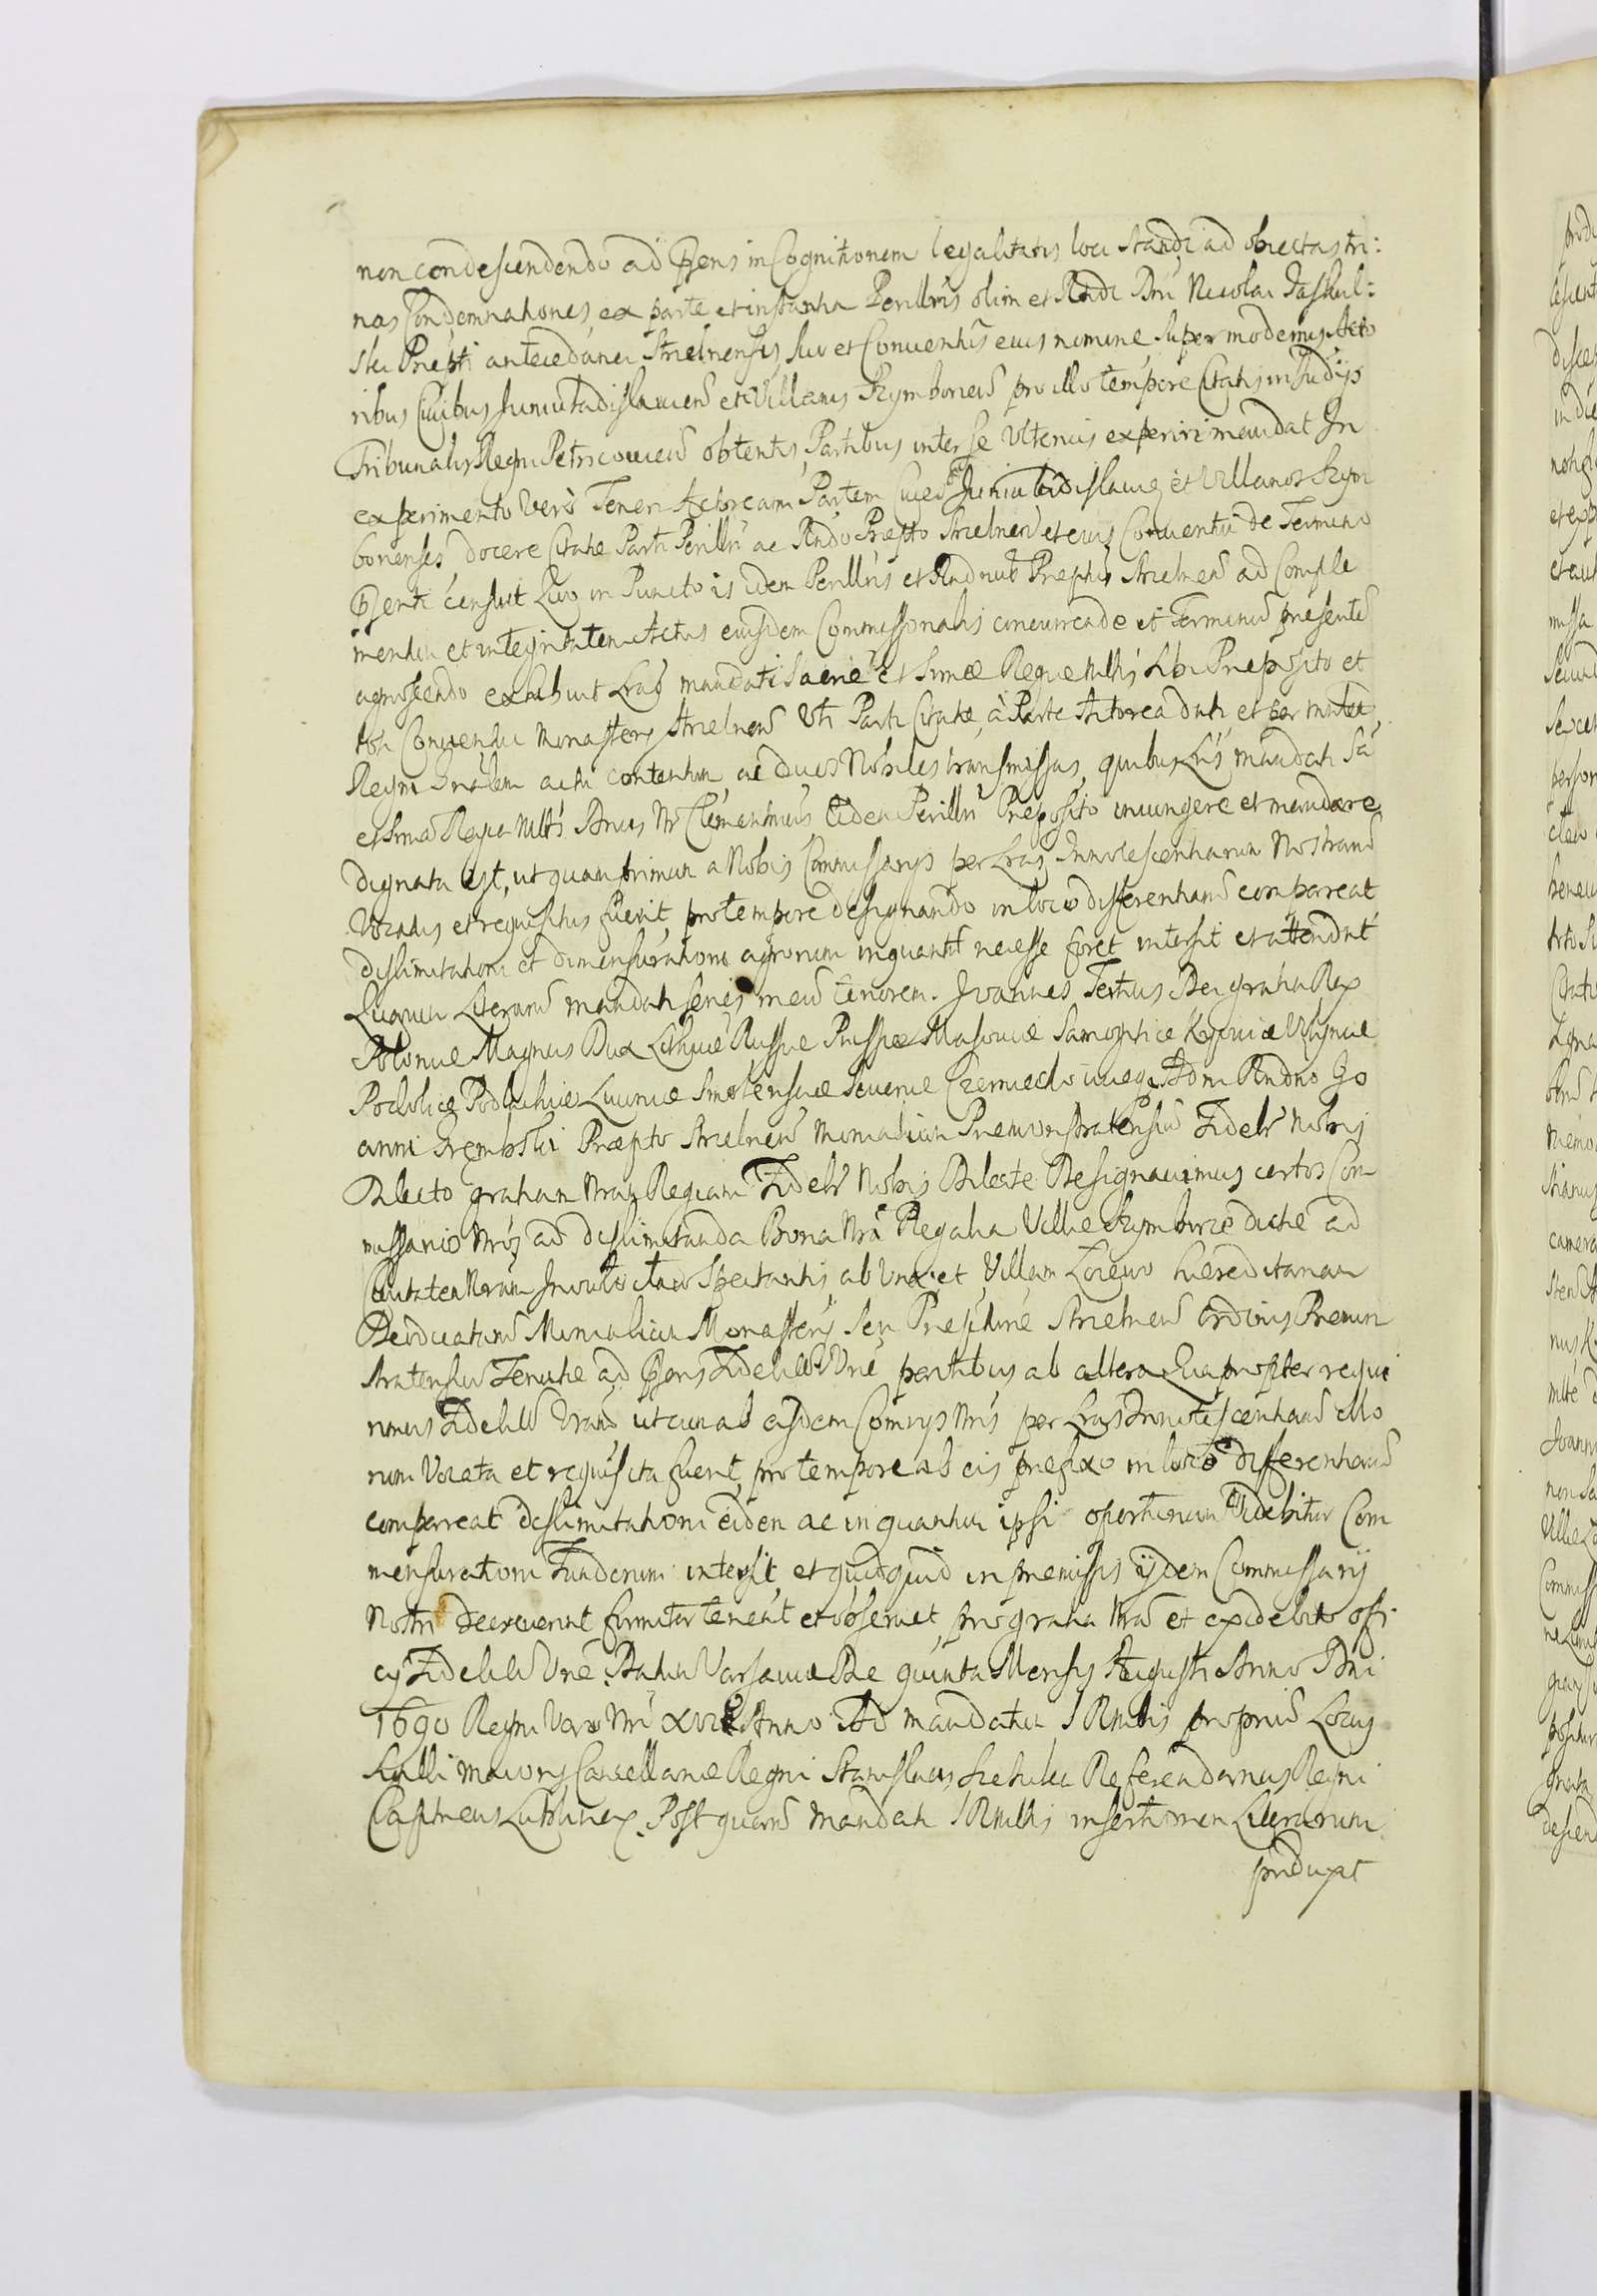 non condescendendo ad Pñens in Cognitionem legalitatis loci standi ad obiectas tri:
nas Condemnationes, ex parte et instantia Perillris olim et Rndi Dni Nicolai Jaskul:
ski Prepti antecedanei Strelnensis, suo et Conventus eius nomine super modernis Acto
ribus Civibus Juniuladislaviens et Villanis Szymboriens pro illo tempore Citatis in Judijs
Tribunalis Regni Petricoviens obtentis, Partibus inter se Ulterius experiri mandat In
experimento Vero Teneri Actoream Partem Cives Juniuladislavien et Villanos Szym
borienses docere Citatæ Parti Perillri ac Rndo Prepto Strelnens et eius Conventui de Termino
Pñenti censuit Quo in Puncto is idem Perillris et Rndnus Preptus Strelnens ad Comple
mentum et integritatem Actus eiusdem Commissorialis concurrendo et Terminum presentem
agnoscendo exhibuit Lras mandati Sacræ et Srmæ Regiæ Mttis sibi Preposito et
toti Conventui Monasterij Strelnens Uti Parti Citatæ, à Parte Actorea dati et per Ministe
Regni Gnalem acti contentum, ac duos Nobiles transmissas, quibus Lris mandati Sa
et Srma Regia Mttis Dnus Nr Clementissimus Eidem Perillri Preposito iniungere et mandare
dignata est, ut quamprimum a Nobis Commissarijs per Lras Innotescentiarum Nostrarum
Vocatus et requisitus fuerit, pro tempore designando in loco differentiarum compareat
dislimitationi et dimensurationi agrorum inquantum necesse foret intersit et attendat
Quarum Literarum mandati seriei meus tenorem. Joannes Tertius Dei gratia Rex
Poloniæ Magnus Dux Lithuæ Russiæ Prussiæ Masoviæ Samogitiæ Kyoviæ Volyniæ
Podoliæ Podlachiæ Livoniæ Smolensciæ Severiæ Czerniechoviæq. Adm Rndno Jo
anni Trembski Præpto Strelnens Monialium Premonstratensium Fideli Nobis
Dilecto gratiam Nram Regiam Fidelis Nobis Dilecte Designavimus certos Com
missarios Nros ad dislimitanda Bona Nra Regalia Villæ Szymborze dictæ ad
Civitatem Nram Inowloclaw Spectantis, ab Una, et Villam Łoiewo hæreditariam
Devotarum Monialium Monasterij seu Prepturæ Strelnens Ordinis Premon
stratensium Tenutæ ad Pñens Fidelitatis Vræ partibus ab altera Quapropter requi
rimus Fidelitatem Vram, ut cum ab eisdem Comrijs Nris per Lras Innotescentiarum illo
rum Vocata et requisita fuerit, pro tempore ab eis præfixo in loco differentiarum
compareat dislimitationi eidem ac in quantum ipsi oportunum Videbitur Com
mensurationi Fundorum intersit, et quidquid in premissis ijdem Commissarij
Nostri decreverint firmiter teneat et observet, pro gratia Nra et ex debito offi
cij Fidelitatis Vræ. Datum Varsaviæ Die quinta Mensis Augusti Anno Dni
1690 Regni Vero Nri XVII Anno Ad mandatum S R Mttis proprium Locus
Sigilli maioris Cancellariæ Regni Stanislaus Szczuka Referendarius Regni
Capitneus Lubinen. Post quarum mandati S R Mttis insertionem Literarum
produxit